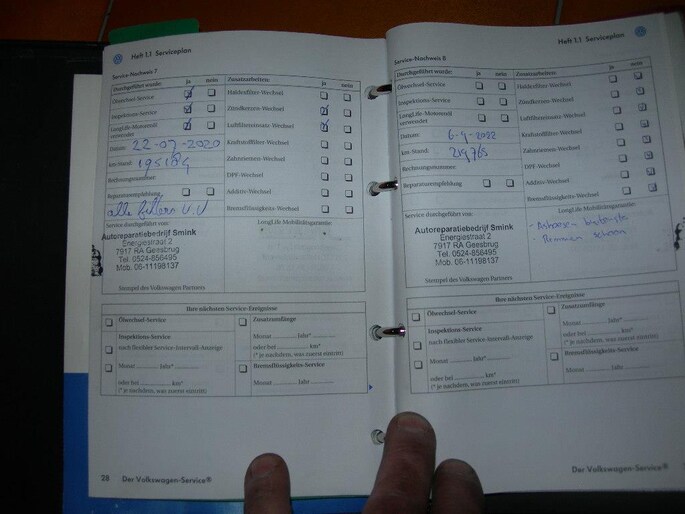 Heft 1.1 Serviceplan
Service-Nachweis 7
Durchgeführt wurde: ja nein
Ölwechsel-Service
Inspektions-Service
LongLife-Motorenöl verwendet
Datum: 22-07-2020
km-Stand: 195184
Rechnungsnummer:
Reparaturempfehlung
Zusatzarbeiten: ja nein
Haldexfilter-Wechsel
Zündkerzen-Wechsel
Luftfiltereinsatz-Wechsel
Kraftstofffilter-Wechsel
Zahnriemen-Wechsel
DPF-Wechsel
Additiv-Wechsel
Bremsflüssigkeits-Wechsel
Service durchgeführt von:
Autoreparatiebedrijf Smink
Energiestraat 2
7917 RA Geesbrug
Tel. 0524-856495
Mob. 06-11198137
Stempel des Volkswagen Partners
LongLife Mobilitätsgarantie
Ihre nächsten Service-Ereignisse
Ölwechsel-Service
Inspektions-Service
nach flexibler Service-Intervall-Anzeige
Monat Jahr*
oder bei km*
(* je nachdem, was zuerst eintritt)
Zusatzumfänge
Monat Jahr*
oder bei km*
(* je nachdem, was zuerst eintritt)
Bremsflüssigkeits-Service
Monat Jahr
28 Der Volkswagen-Service®
Heft 1.1 Serviceplan
Service-Nachweis 8
Durchgeführt wurde: ja nein
Ölwechsel-Service
Inspektions-Service
LongLife-Motorenöl verwendet
Datum: 6-4-2022
km-Stand: 219765
Rechnungsnummer:
Reparaturempfehlung
Zusatzarbeiten: ja nein
Haldexfilter-Wechsel
Zündkerzen-Wechsel
Luftfiltereinsatz-Wechsel
Kraftstofffilter-Wechsel
Zahnriemen-Wechsel
DPF-Wechsel
Additiv-Wechsel
Bremsflüssigkeits-Wechsel
Service durchgeführt von:
Autoreparatiebedrijf Smink
Energiestraat 2
7917 RA Geesbrug
Tel. 0524-856495
Mob. 06-11198137
Stempel des Volkswagen Partners
LongLife Mobilitätsgarantie
Ihre nächsten Service-Ereignisse
Ölwechsel-Service
Inspektions-Service
nach flexibler Service-Intervall-Anzeige
Monat Jahr*
oder bei km*
(* je nachdem, was zuerst eintritt)
Zusatzumfänge
Monat Jahr*
oder bei km*
(* je nachdem, was zuerst eintritt)
Bremsflüssigkeits-Service
Monat Jahr
Der Volkswagen-Service®